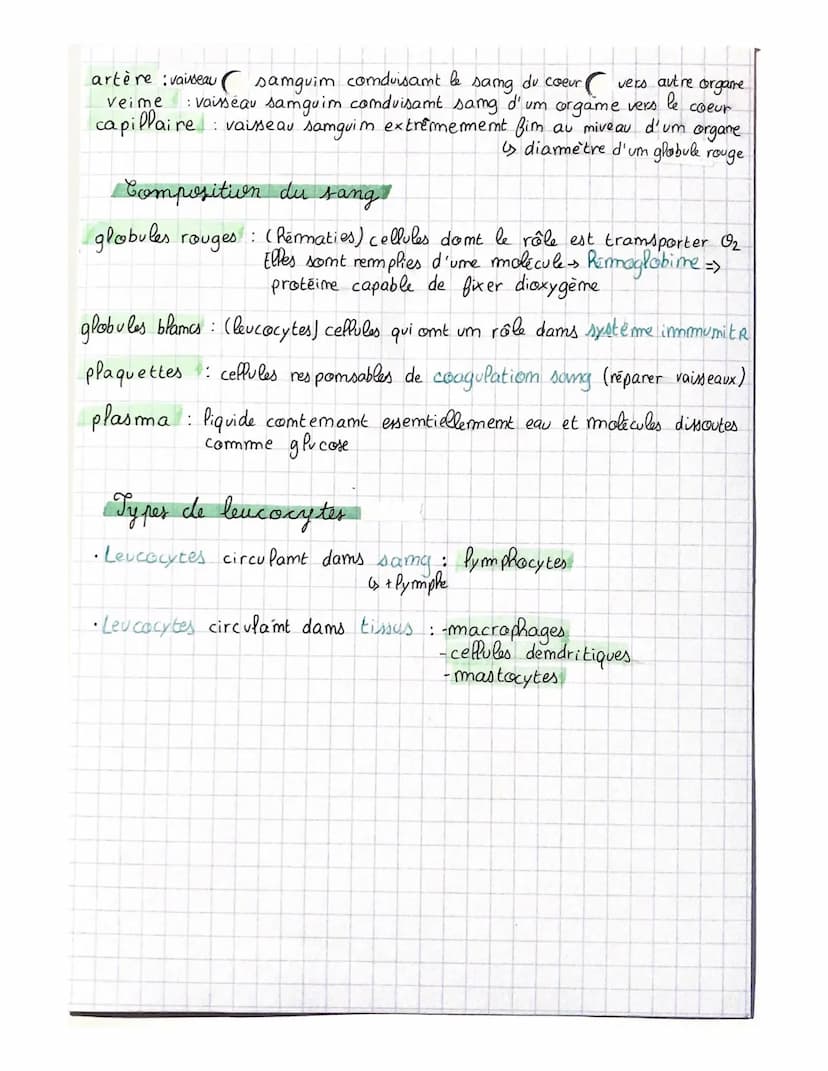 artère : vaisseau sanguin conduisant le sang du coeur vers autre organe
veine : vaisseau sanguin conduisant sang d'un organe vers le coeur
capillaire : vaisseau sanguin extrêmement fin au niveau d'un organe
↳ diamètre d'un globule rouge
Composition du sang
globules rouges : (hématies) cellules dont le rôle est transporter O2
Elles sont remplies d'une molécule → hémoglobine =>
protéine capable de fixer dioxygène
globules blancs : (leucocytes) cellules qui ont un rôle dans système immunitR
plaquettes : cellules responsables de coagulation sang (réparer vaisseaux)
plasma : liquide contenant essentiellement eau et molécules dissoutes
comme glucose
Types de leucocytes
· Leucocytes circulant dans sang : lymphocytes
↳ + lymphe
· Leucocytes circulant dans tissus : - macrophages
- cellules dendritiques
- mastocytes